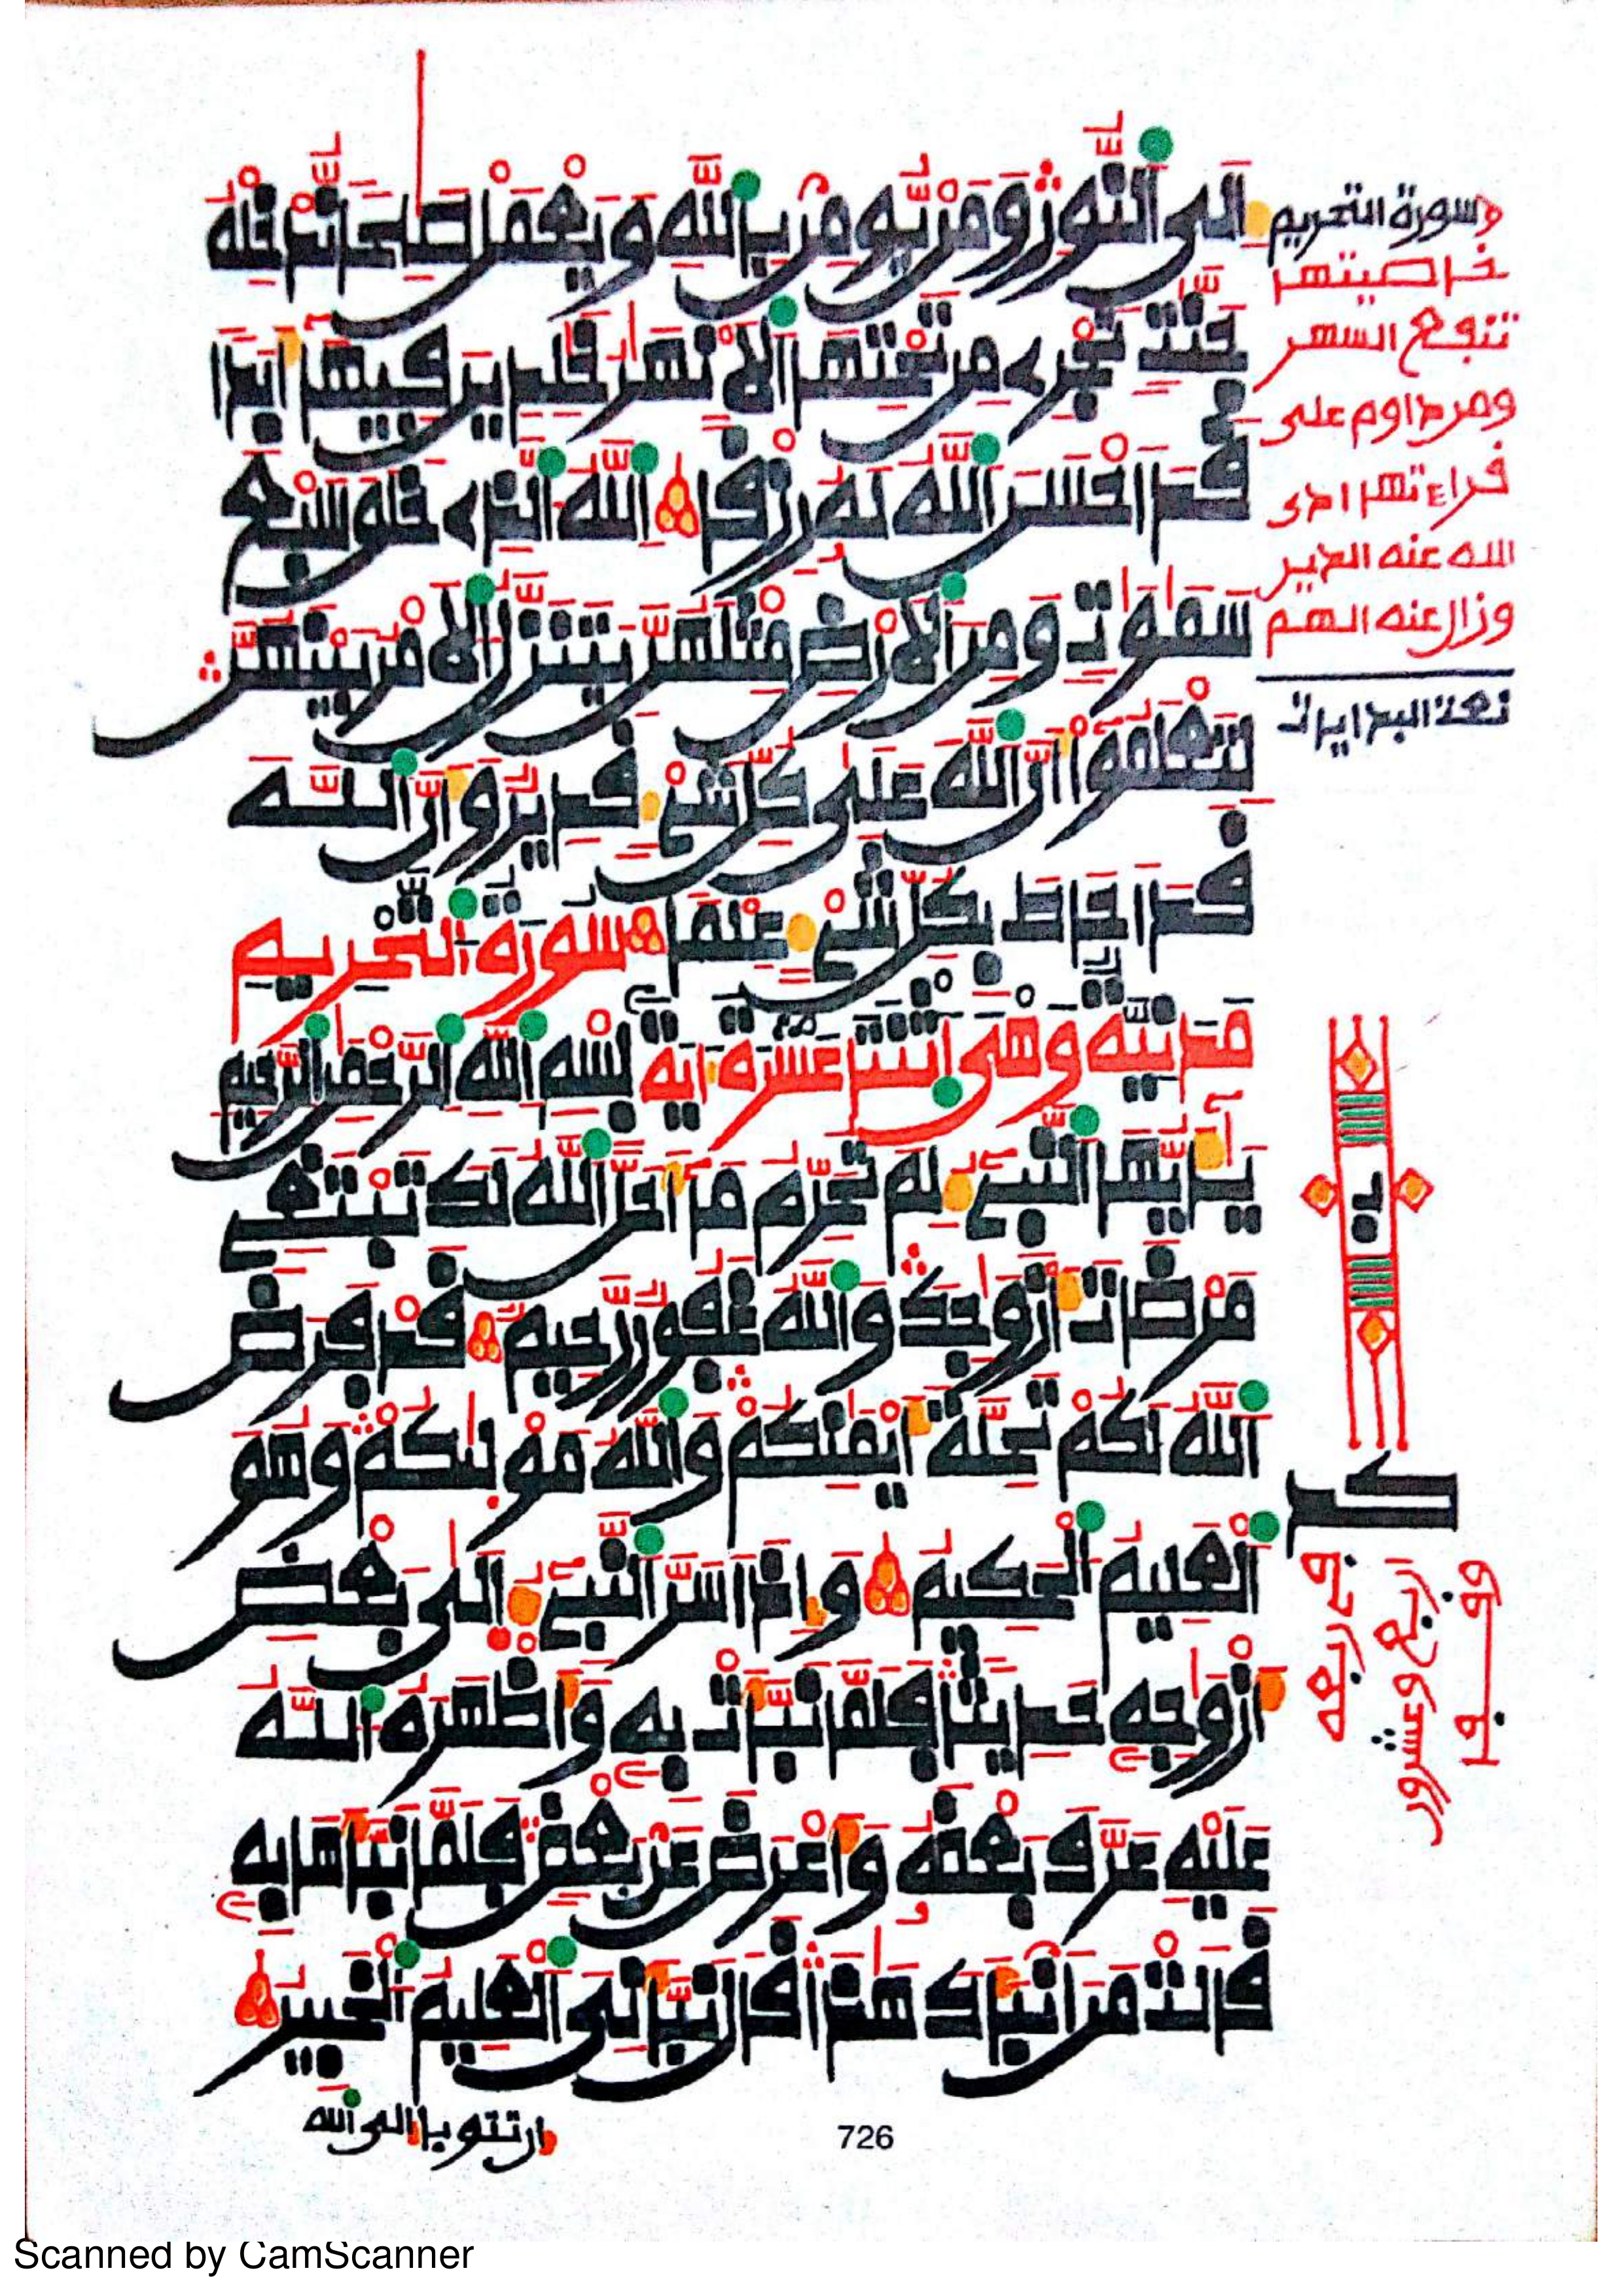 إلى النور ومن يومن بالله ويعمل صلحا ندخله
جنت تجرى من تحتها الانهر خلدين فيها أبدا
قد احسن الله له رزقا الله الذى خلق سبع
سموت ومن الارض مثلهن يتنزل الامر بينهن
لتعلموا أن الله على كل شىء قدير وأن الله
قد احاط بكل شىء علما سورة التحريم
مدنية وهى اثنتا عشرة ءاية بسم الله الرحمن الرحيم
يأيها النبىء لم تحرم ما أحل الله لك تبتغى
مرضات أزوجك والله غفور رحيم قد فرض
الله لكم تحلة أيمنكم والله موليكم وهو
العليم الحكيم وإذ اسر النبىء إلى بعض
أزوجه حديثا فلما نبأت به وأظهره الله
عليه عرف بعضه وأعرض عن بعض فلما نبأها به
قالت من انبأك هذا قال نبأنى العليم الخبير
إن تتوبا إلى الله
726
سورة التحريم
خاصيتها
تنفع السهر
ومن داوم على
قراءتها ادى
الله عنه الدين
وزال عنه الهم
كد
اربع وعشرون
Scanned by CamScanner